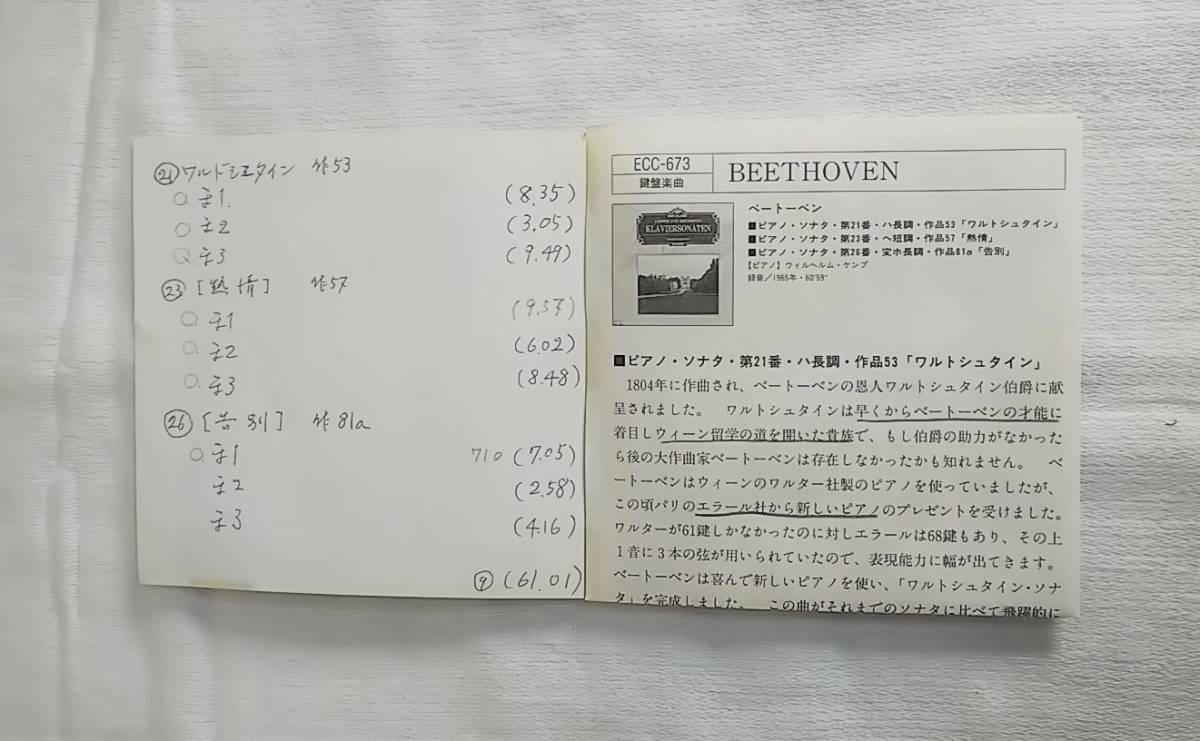 ㉑ワルドシュタイン 作53
○ 㐧1. (8.35)
○ 㐧2 (3.05)
○ 㐧3 (9.49)
㉓[熱情] 作57
○ 㐧1 (9.57)
○ 㐧2 (6.02)
○ 㐧3 (8.48)
㉖[告別] 作81a
○ 㐧1 710 (7.05)
㐧2 (2.58)
㐧3 (4.16)
⑨ (61.01)
ECC-673
鍵盤楽曲
BEETHOVEN
KLAVIERSONATEN
ベートーベン
■ピアノ・ソナタ・第21番・ハ長調・作品53「ワルトシュタイン」
■ピアノ・ソナタ・第23番・ヘ短調・作品57「熱情」
■ピアノ・ソナタ・第26番・変ホ長調・作品81a「告別」
【ピアノ】ウィルヘルム・ケンプ
録音/1965年・60'59"
■ピアノ・ソナタ・第21番・ハ長調・作品53「ワルトシュタイン」
1804年に作曲され、ベートーベンの恩人ワルトシュタイン伯爵に献
呈されました。 ワルトシュタインは早くからベートーベンの才能に
着目しウィーン留学の道を開いた貴族で、もし伯爵の助力がなかった
ら後の大作曲家ベートーベンは存在しなかったかも知れません。 ベ
ートーベンはウィーンのワルター社製のピアノを使っていましたが、
この頃パリのエラール社から新しいピアノのプレゼントを受けました。
ワルターが61鍵しかなかったのに対しエラールは68鍵もあり、その上
1音に3本の弦が用いられていたので、表現能力に幅が出てきます。
ベートーベンは喜んで新しいピアノを使い、「ワルトシュタイン・ソナ
タ」を完成しました。 この曲がそれまでのソナタに比べて飛躍的に